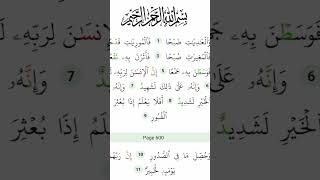 بِسْمِ ٱللَّهِ ٱلرَّحْمَٰنِ ٱلرَّحِيمِ
وَٱلْعَٰدِيَٰتِ ضَبْحًا 1 فَٱلْمُورِيَٰتِ قَدْحًا
فَٱلْمُغِيرَٰتِ صُبْحًا 3 فَأَثَرْنَ بِهِۦ نَقْعًا
فَوَسَطْنَ بِهِۦ جَمْعًا 5 إِنَّ ٱلْإِنسَٰنَ لِرَبِّهِۦ
6 وَإِنَّهُۥ عَلَىٰ ذَٰلِكَ لَشَهِيدٌ 7 وَإِنَّهُۥ
ٱلْخَيْرِ لَشَدِيدٌ 8 أَفَلَا يَعْلَمُ إِذَا بُعْثِرَ
ٱلْقُبُورِ 9
Page 600
وَحُصِّلَ مَا فِى ٱلصُّدُورِ 10 إِنَّ رَبَّهُم
يَوْمَئِذٍ لَّخَبِيرٌۢ 11